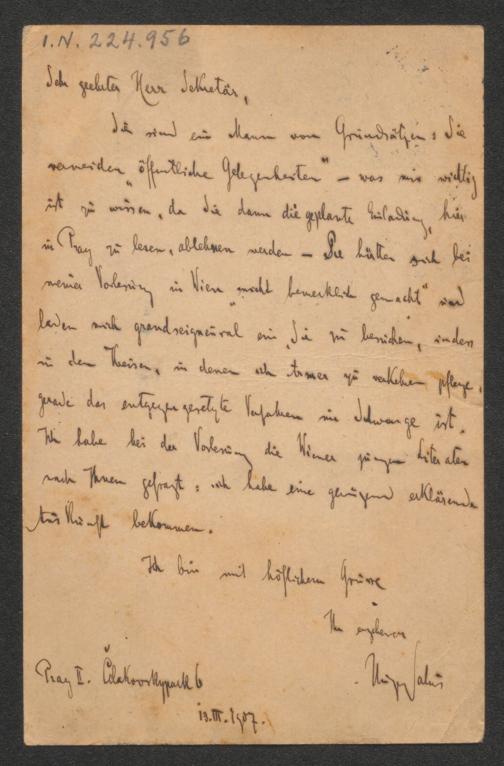 I.N. 224.956
Sehr geehrter Herr Sekretär,
Sie sind ein Mann von Grundsätzen: Sie
vermeiden „öffentliche Gelegenheiten" – was mir wichtig
ist zu wissen, da Sie dann die geplante Einladung, hier
in Prag zu lesen, ablehnen werden – Sie hätten sich bei
meiner Vorlesung in Wien „nicht bemerklich gemacht" und
laden mich grandseigneural ein, Sie zu besuchen, indess
in den Kreisen, in denen ich Armer zu verkehren pflege,
gerade das entgegengesetzte Verfahren im Schwange ist.
Ich habe bei der Vorlesung die Wiener jungen Literaten
nach Ihnen gefragt: ich habe eine genügend erklärende
Auskunft bekommen.
Ich bin mit höflichem Grusse
Ihr ergebener
Hugo Salus
Prag II. Čelakovskypark 6
13.III.1907.